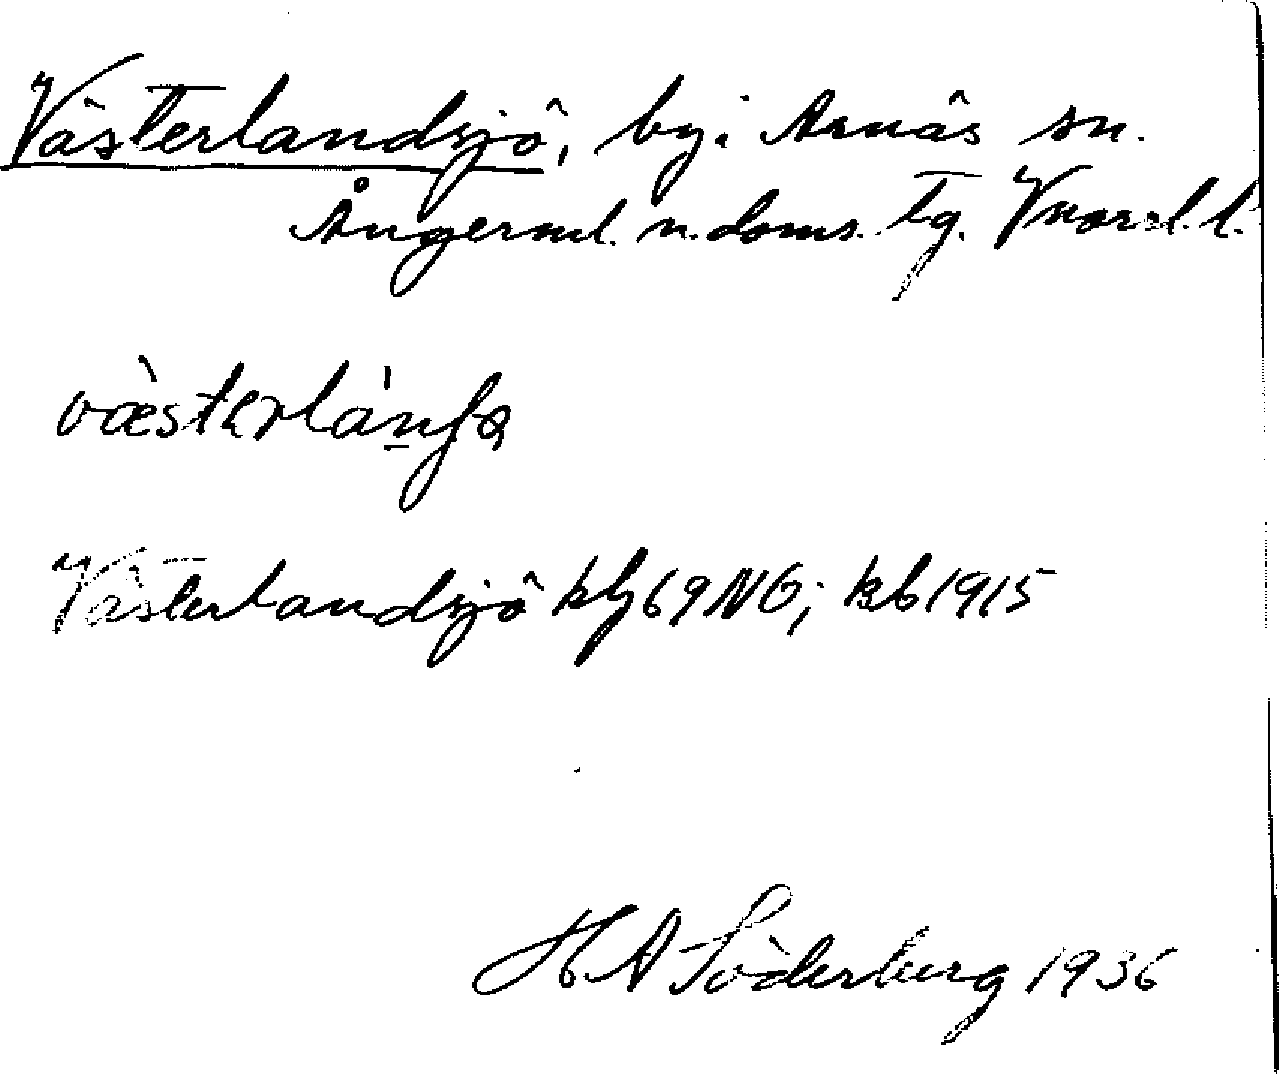 Västerlandsjö, by i Arnäs sn.
Ångerml. n. doms. tg. Vnorrl. l.
Västerlandsjö kbl 69 NO; kb 1915
H A Söderberg 1936